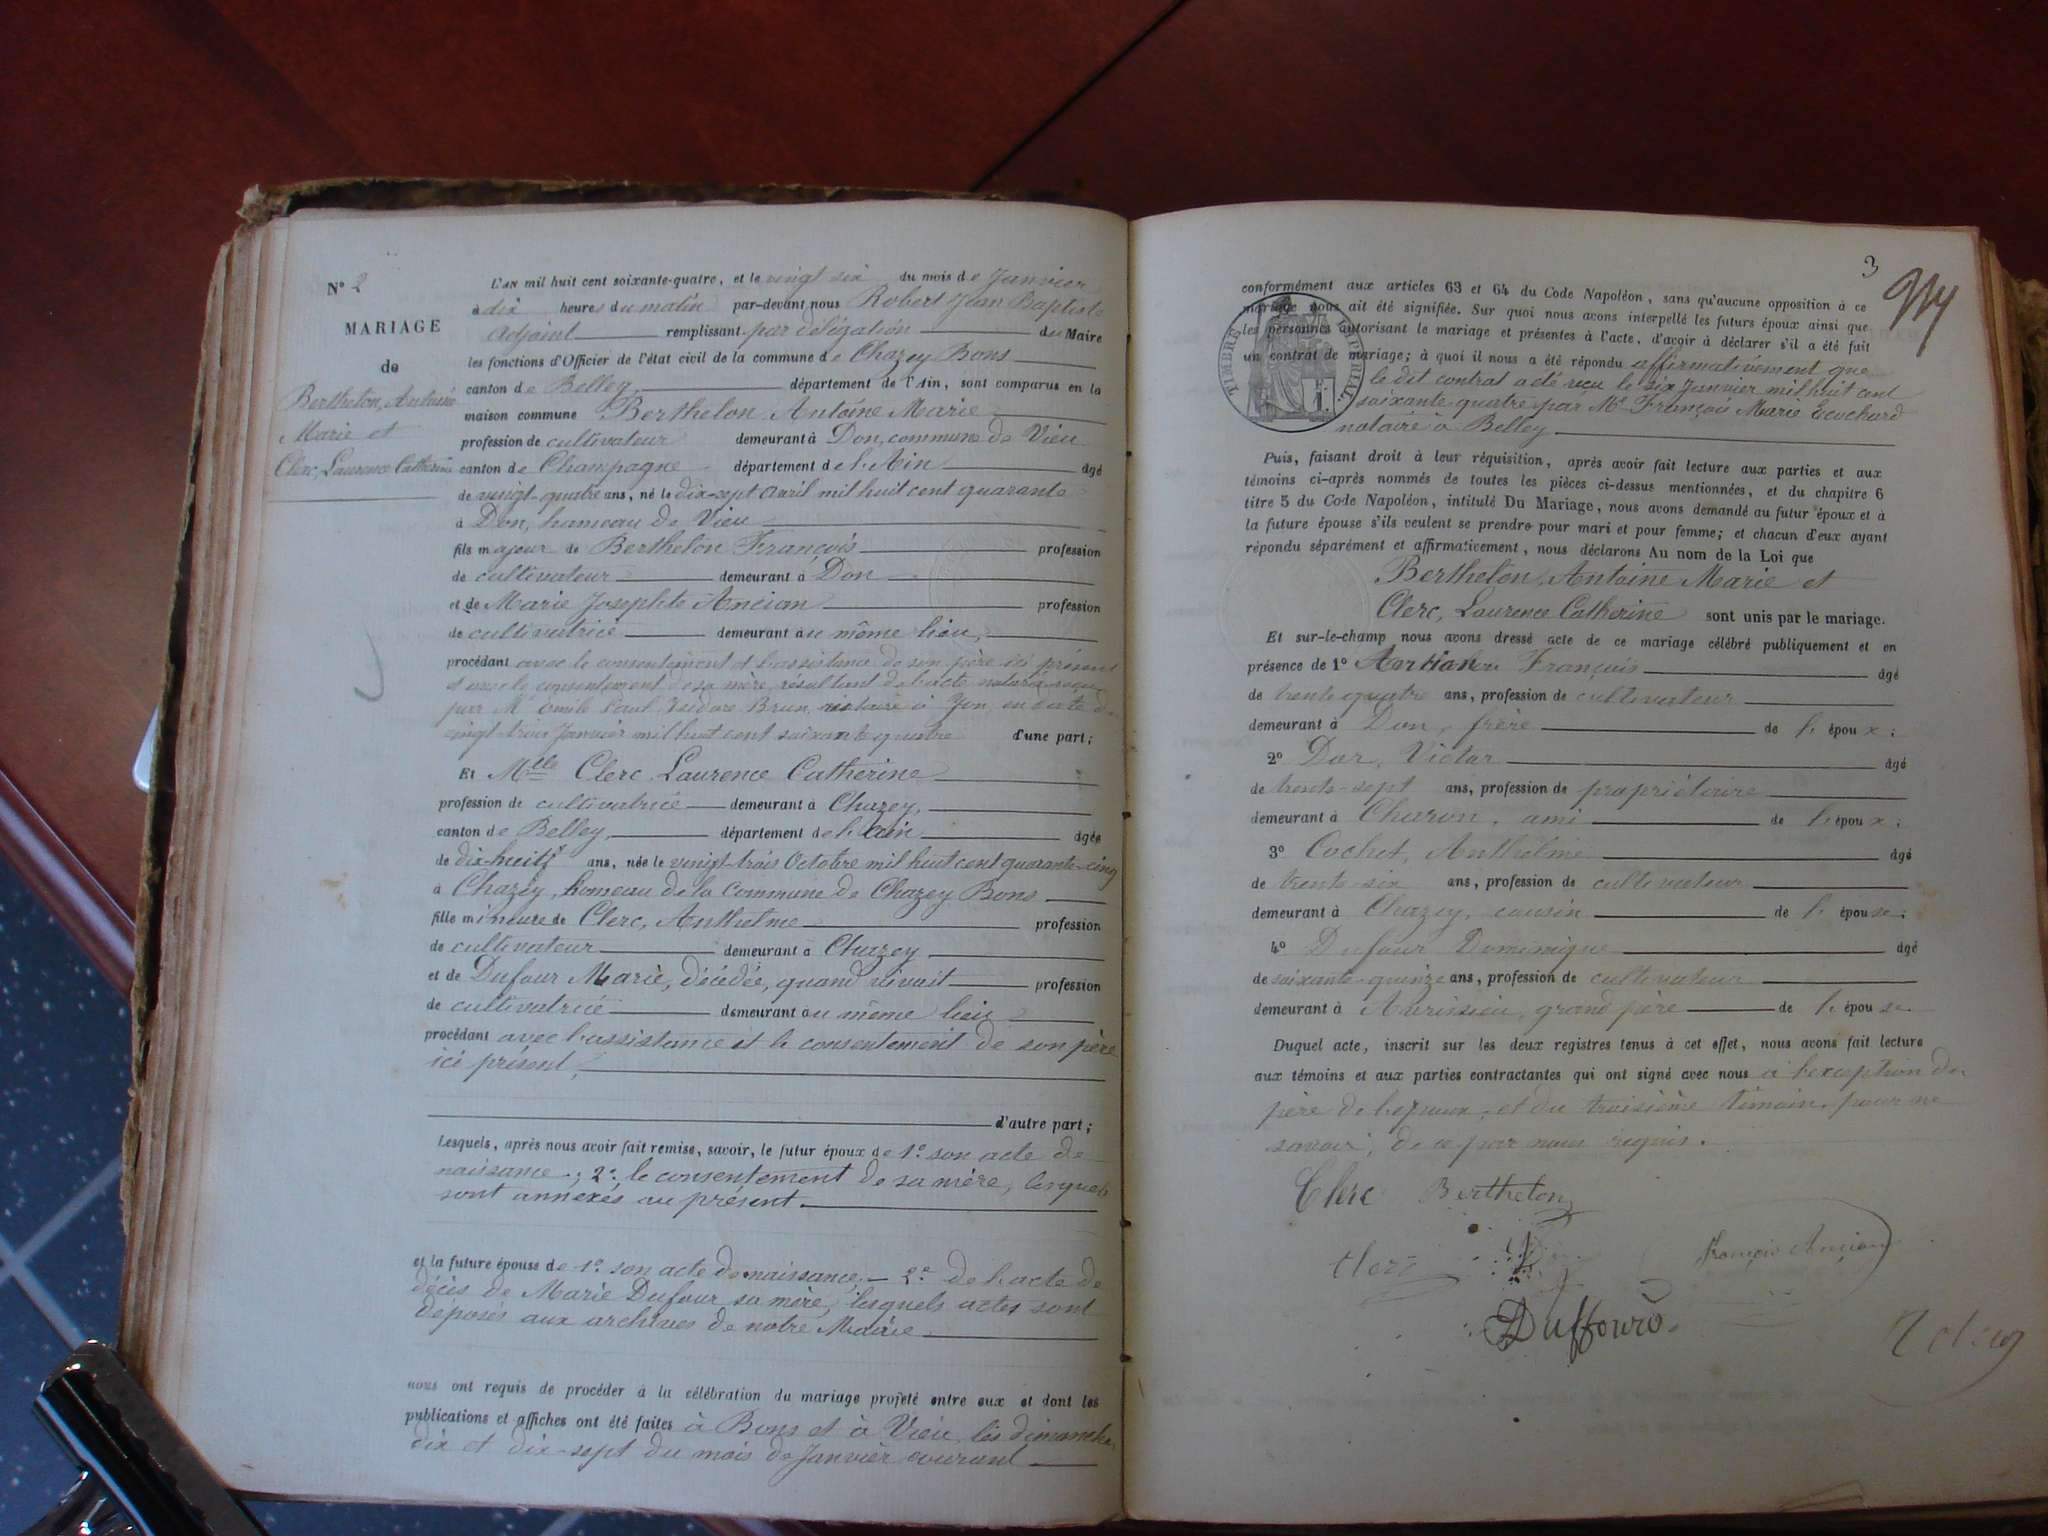 N° 2
MARIAGE
de
Berthelon, Antoine
Marie et
Clerc, Laurence Catherine
L'AN mil huit cent soixante-quatre, et le vingt six du mois de Janvier
à dix heures du matin par-devant nous Robert Jean Baptiste
Adjoint remplissant par délégation du Maire
les fonctions d'Officier de l'état civil de la commune de Chazey Bons
canton de Belley, département de l'Ain, sont comparus en la
maison commune Berthelon Antoine Marie
profession de cultivateur demeurant à Don, commune de Vieu
canton de Champagne département de l'Ain âgé
de vingt-quatre ans, né le dix-sept avril mil huit cent quarante
à Don, hameau de Vieu
fils majeur de Berthelon François profession
de cultivateur demeurant à Don
et de Marie Josephte Ancian profession
de cultivatrice demeurant au même lieu,
procédant avec le consentement et l'assistance de son père ici présent
et avec le consentement de sa mère, résultant de l'acte notarié reçu
par Me Emile Paul Isidore Brun notaire à Yon, en date du
vingt-trois Janvier mil huit cent soixante quatre d'une part;
Et Mlle Clerc Laurence Catherine
profession de cultivatrice demeurant à Chazey,
canton de Belley, département de l'ain âgée
de dix-huit ans, née le vingt-trois Octobre mil huit cent quarante-cinq
à Chazey, hameau de la Commune de Chazey Bons
fille mineure de Clerc, Anthelme profession
de cultivateur demeurant à Chazey
et de Dufour Marie, décédée, quand vivait profession
de cultivatrice demeurant au même lieu
procédant avec l'assistance et le consentement de son père
ici présent,
d'autre part;
Lesquels, après nous avoir fait remise, savoir, le futur époux de 1° son acte de
naissance; 2°, le consentement de sa mère, lesquels
sont annexés au présent.
et la future épouse de 1° son acte de naissance, - 2° de l'acte de
décès de Marie Dufour sa mère, lesquels actes sont
déposés aux archives de notre Mairie
nous ont requis de procéder à la célébration du mariage projeté entre eux et dont les
publications et affiches ont été faites à Bons et à Vieu, les dimanches
dix et dix-sept du mois de Janvier courant
3
conformément aux articles 63 et 64 du Code Napoléon, sans qu'aucune opposition à ce
mariage nous ait été signifiée. Sur quoi nous avons interpellé les futurs époux ainsi que
les personnes autorisant le mariage et présentes à l'acte, d'avoir à déclarer s'il a été fait
un contrat de mariage; à quoi il nous a été répondu affirmativement que
le dit contrat a été reçu le six Janvier mil huit cent
soixante-quatre par Me François Marie Ecochard
notaire à Belley
TIMBRE IMPÉRIAL
Puis, faisant droit à leur réquisition, après avoir fait lecture aux parties et aux
témoins ci-après nommés de toutes les pièces ci-dessus mentionnées, et du chapitre 6
titre 5 du Code Napoléon, intitulé Du Mariage, nous avons demandé au futur époux et à
la future épouse s'ils veulent se prendre pour mari et pour femme; et chacun d'eux ayant
répondu séparément et affirmativement, nous déclarons Au nom de la Loi que
Berthelon, Antoine Marie et
Clerc, Laurence Catherine sont unis par le mariage.
Et sur-le-champ nous avons dressé acte de ce mariage célébré publiquement et en
présence de 1° François âgé
de trente quatre ans, profession de cultivateur
demeurant à Don, frère de l'époux;
2° Dor, Victor âgé
de trente-sept ans, profession de propriétaire
demeurant à Charon, ami de l'époux;
3° Cochet, Anthelme âgé
de trente-six ans, profession de cultivateur
demeurant à Chazey, cousin de l'épouse;
4° Dufour Dominique âgé
de soixante-quinze ans, profession de cultivateur
demeurant à Avrissieu, grand père de l'épouse
Duquel acte, inscrit sur les deux registres tenus à cet effet, nous avons fait lecture
aux témoins et aux parties contractantes qui ont signé avec nous à l'exception du
père de l'epoux, et du troisième témoin, pour ne
savoir, de ce par nous requis.
Clerc Berthelon
Clerc François Ancian
Duffour